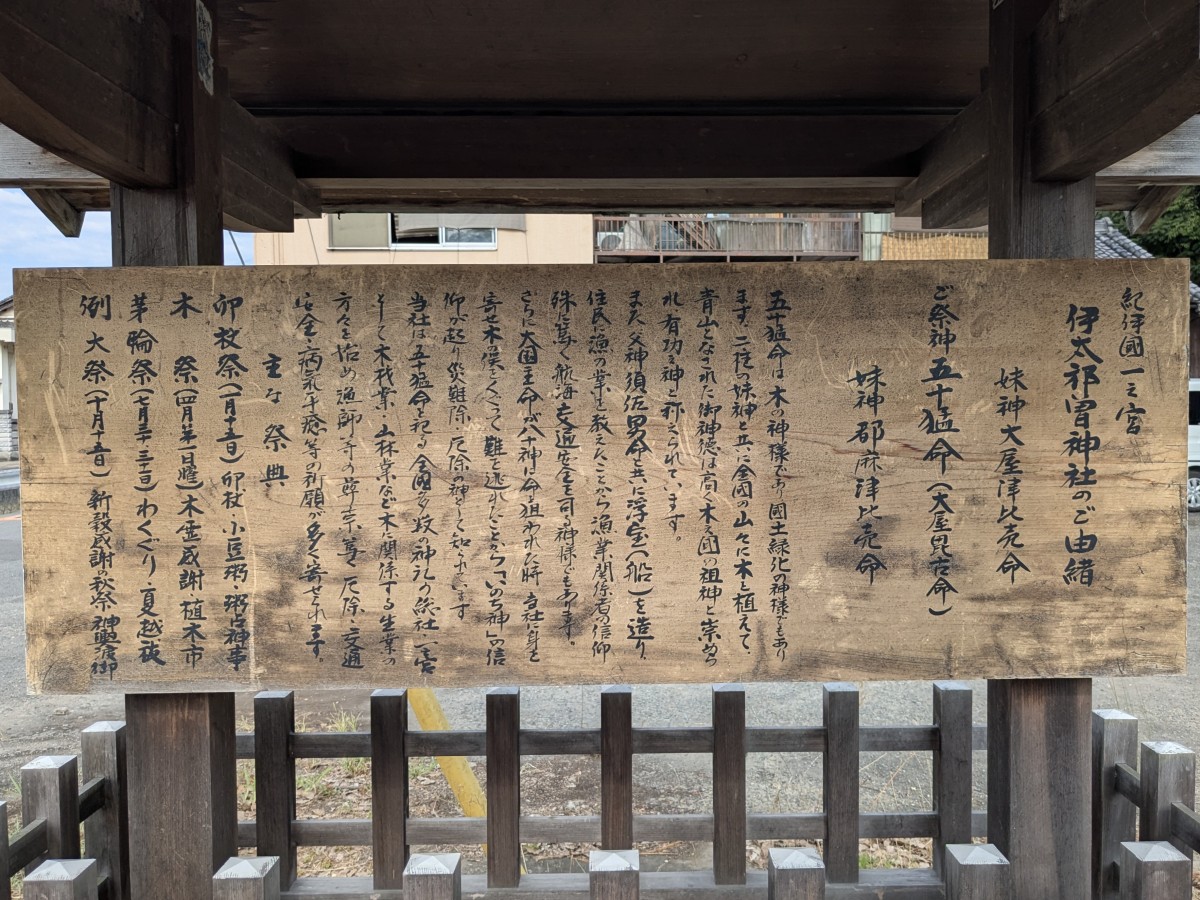 紀伊國一之宮
伊太祁曽神社のご由緒
妹神大屋津比売命
ご祭神 五十猛命(大屋毘古命)
妹神 都麻津比売命
五十猛命は木の神様であり國土緑化の神様でもあり
ます。二柱の妹神と共に全國の山々に木を植えて、
青山となされた御神徳は高く木の國の祖神と崇めら
れ有功の神と称えられています。
また父神須佐男命と共に浮宝(船)を造り、
住民に漁の業を教えたことから漁業関係者の信仰
殊に篤く航海、交通安全を司る神様でもあります。
さらに大国主命が八十神に命を狙われた時、当社に身を
寄せ木の俣をくぐって難を逃れたことから「いのち神」の信
仰が起り災難除、厄除の神として知られています
当社は五十猛命を祀る全國多数の神社の総社、一之宮
そして木材業、山林業など木に関係する生業の
方々を始め漁師等の尊崇篤く、厄除・交通
安全・病気平癒等の祈願が多く寄せられます。
主な祭典
卯杖祭(一月十五日)卯杖、小豆粥・粥占神事
木祭(四月第一日曜)木霊感謝 植木市
茅輪祭(七月三十・三十一日)わくぐり・夏越祓
例大祭(十月十五日)新穀感謝の秋祭 神輿渡御